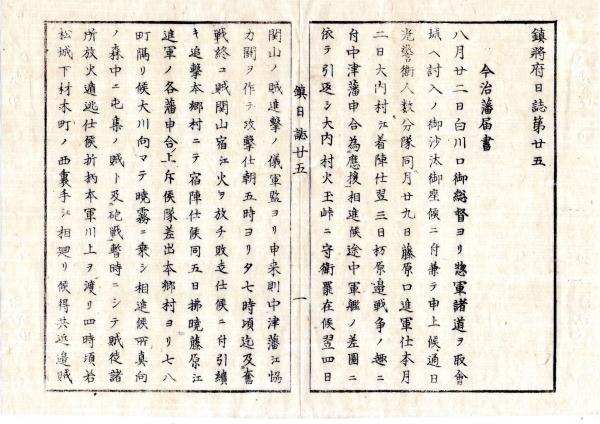 鎮將府日誌第廿五
今治藩届書
八月廿二日白川口御総督ヨリ惣軍諸道ヲ取會
城ヘ討入ノ御沙汰御座候ニ付兼テ申上候通日
光警衛人数分隊同月廿九日藤原口進軍仕本月
二日大内村江着陣仕翌三日栃原邊戦争ノ趣ニ
付中津藩申合為應援相進候途中軍艦ノ差圖ニ
依テ引返シ大内村火玉峠ニ守衛罷在候翌四日
鎮日誌廿五
一
関山ノ賊進撃ノ儀軍監ヨリ申来則中津藩江恊
力闘ヲ作テ攻撃仕朝五時ヨリ夕七時頃迄及奮
戦終ニ賊関山宿江火ヲ放チ敗走仕候ニ付引續
キ追撃本郷村ニテ宿陣仕候同五日拂曉藤原江
進軍ノ各藩申合上斥候隊差出本郷村ヨリ七八
町隔リ候大川向マテ曉霧ニ乗シ相進候所真向
ノ森中ニ屯集ノ賊ト及砲戦暫時ニシテ賊徒諸
所放火遁逃仕候折柄本軍川上ヲ渡リ四時頃若
松城下材木町ノ西裏手江相廻リ候得共近邊賊